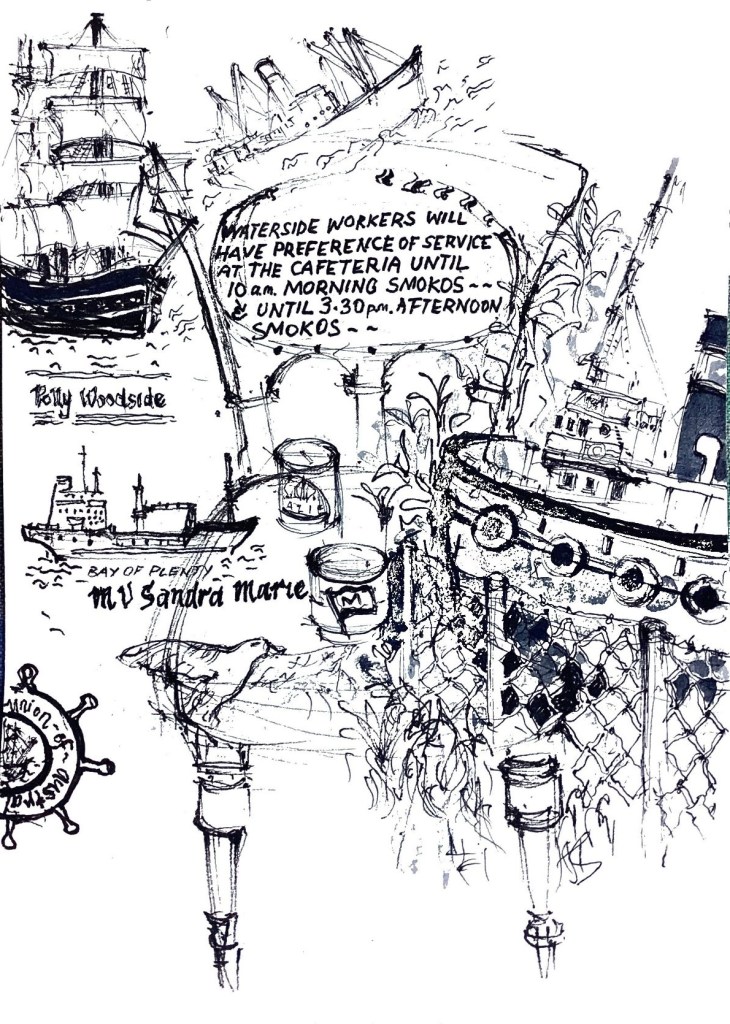 WATERSIDE WORKERS WILL
HAVE PREFERENCE OF SERVICE
AT THE CAFETERIA UNTIL
10 a.m. MORNING SMOKOS ~~
& UNTIL 3.30 pm. AFTERNOON
SMOKOS ~~
Polly Woodside
BAY OF PLENTY
MV Sandra Marie
M
union-of-Austra